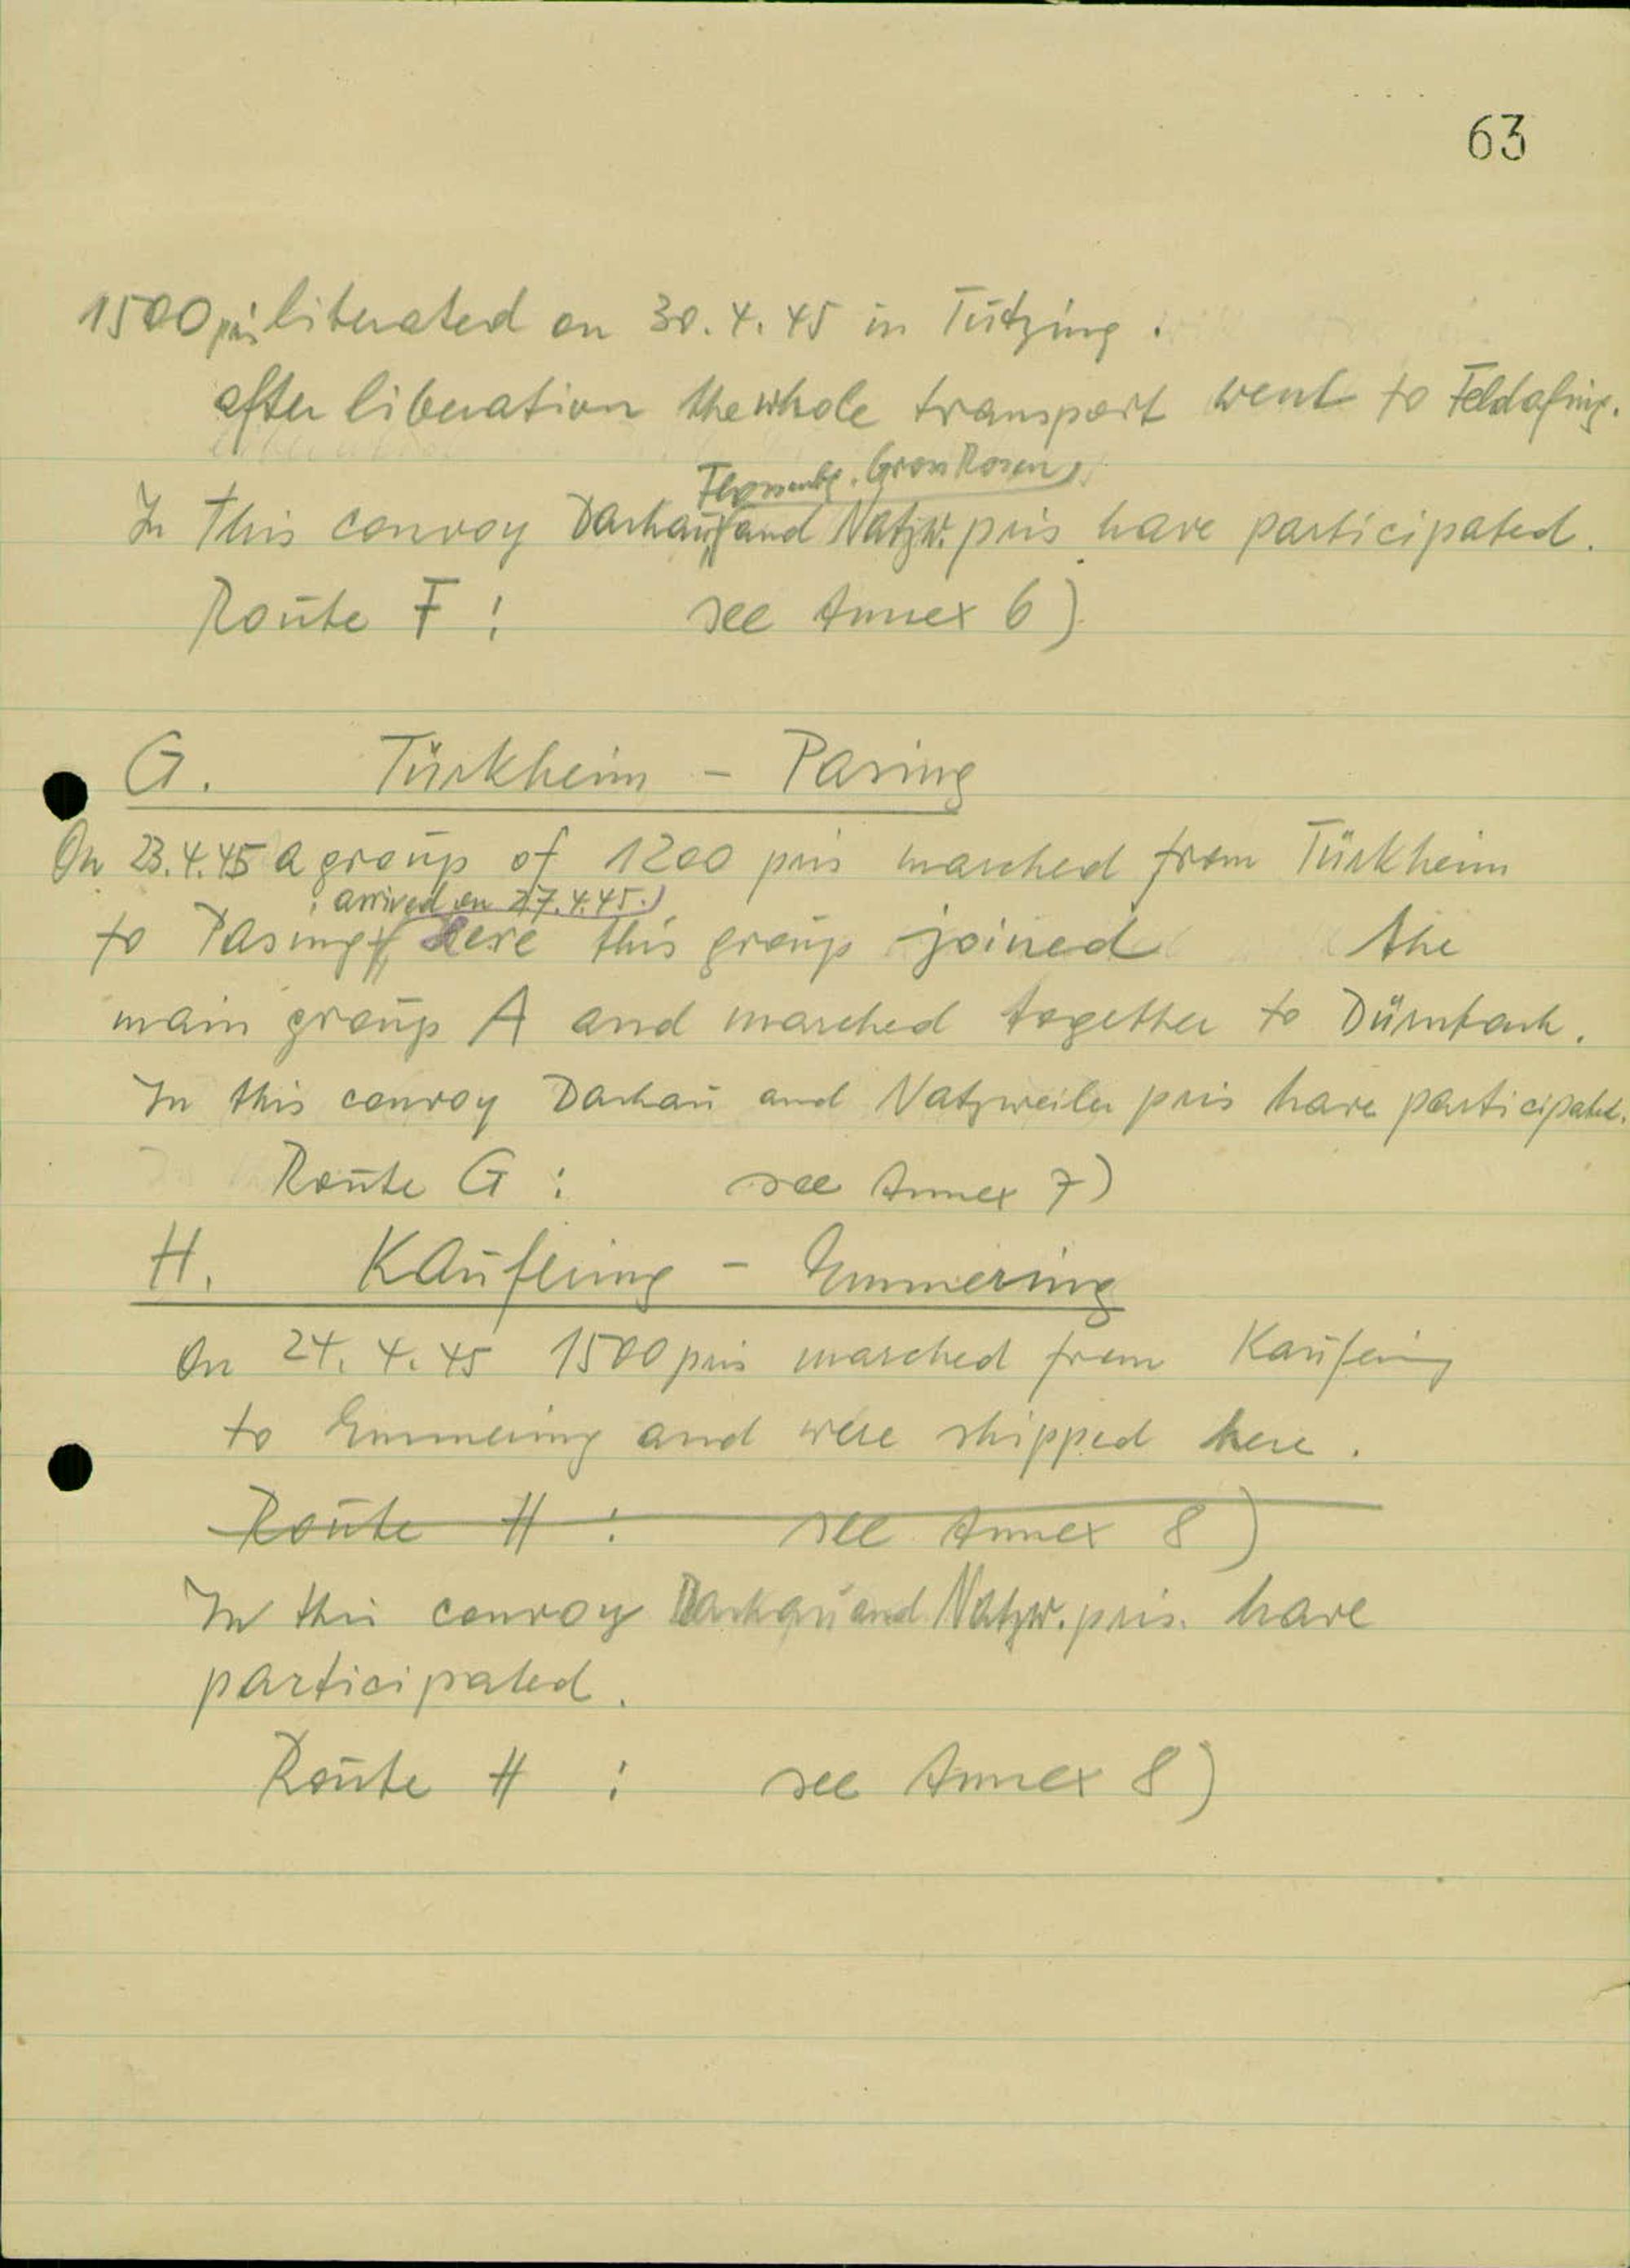 63
1500 pris liberated on 30.4.45 in Tutzing.
after liberation the whole transport went to Feldafing.
Flossenbg. Gross Rosen,
In this convoy Dachau, and Natzw. pris have participated.
Route F : see Annex 6)
G. Türkheim - Pasing
On 23.4.45 a group of 1200 pris marched from Türkheim
, arrived on 27.4.45.
to Pasing. Here this group joined the
main group A and marched together to Dürnbach.
In this convoy Dachau and Natzweiler pris have participated.
Route G : see Annex 7)
H. Kaufering - Emmering
On 24.4.45 1500 pris marched from Kaufering
to Emmering and were shipped here.
Route H : see Annex 8)
In this convoy Dachau and Natzw. pris. have
participated.
Route H : see Annex 8)